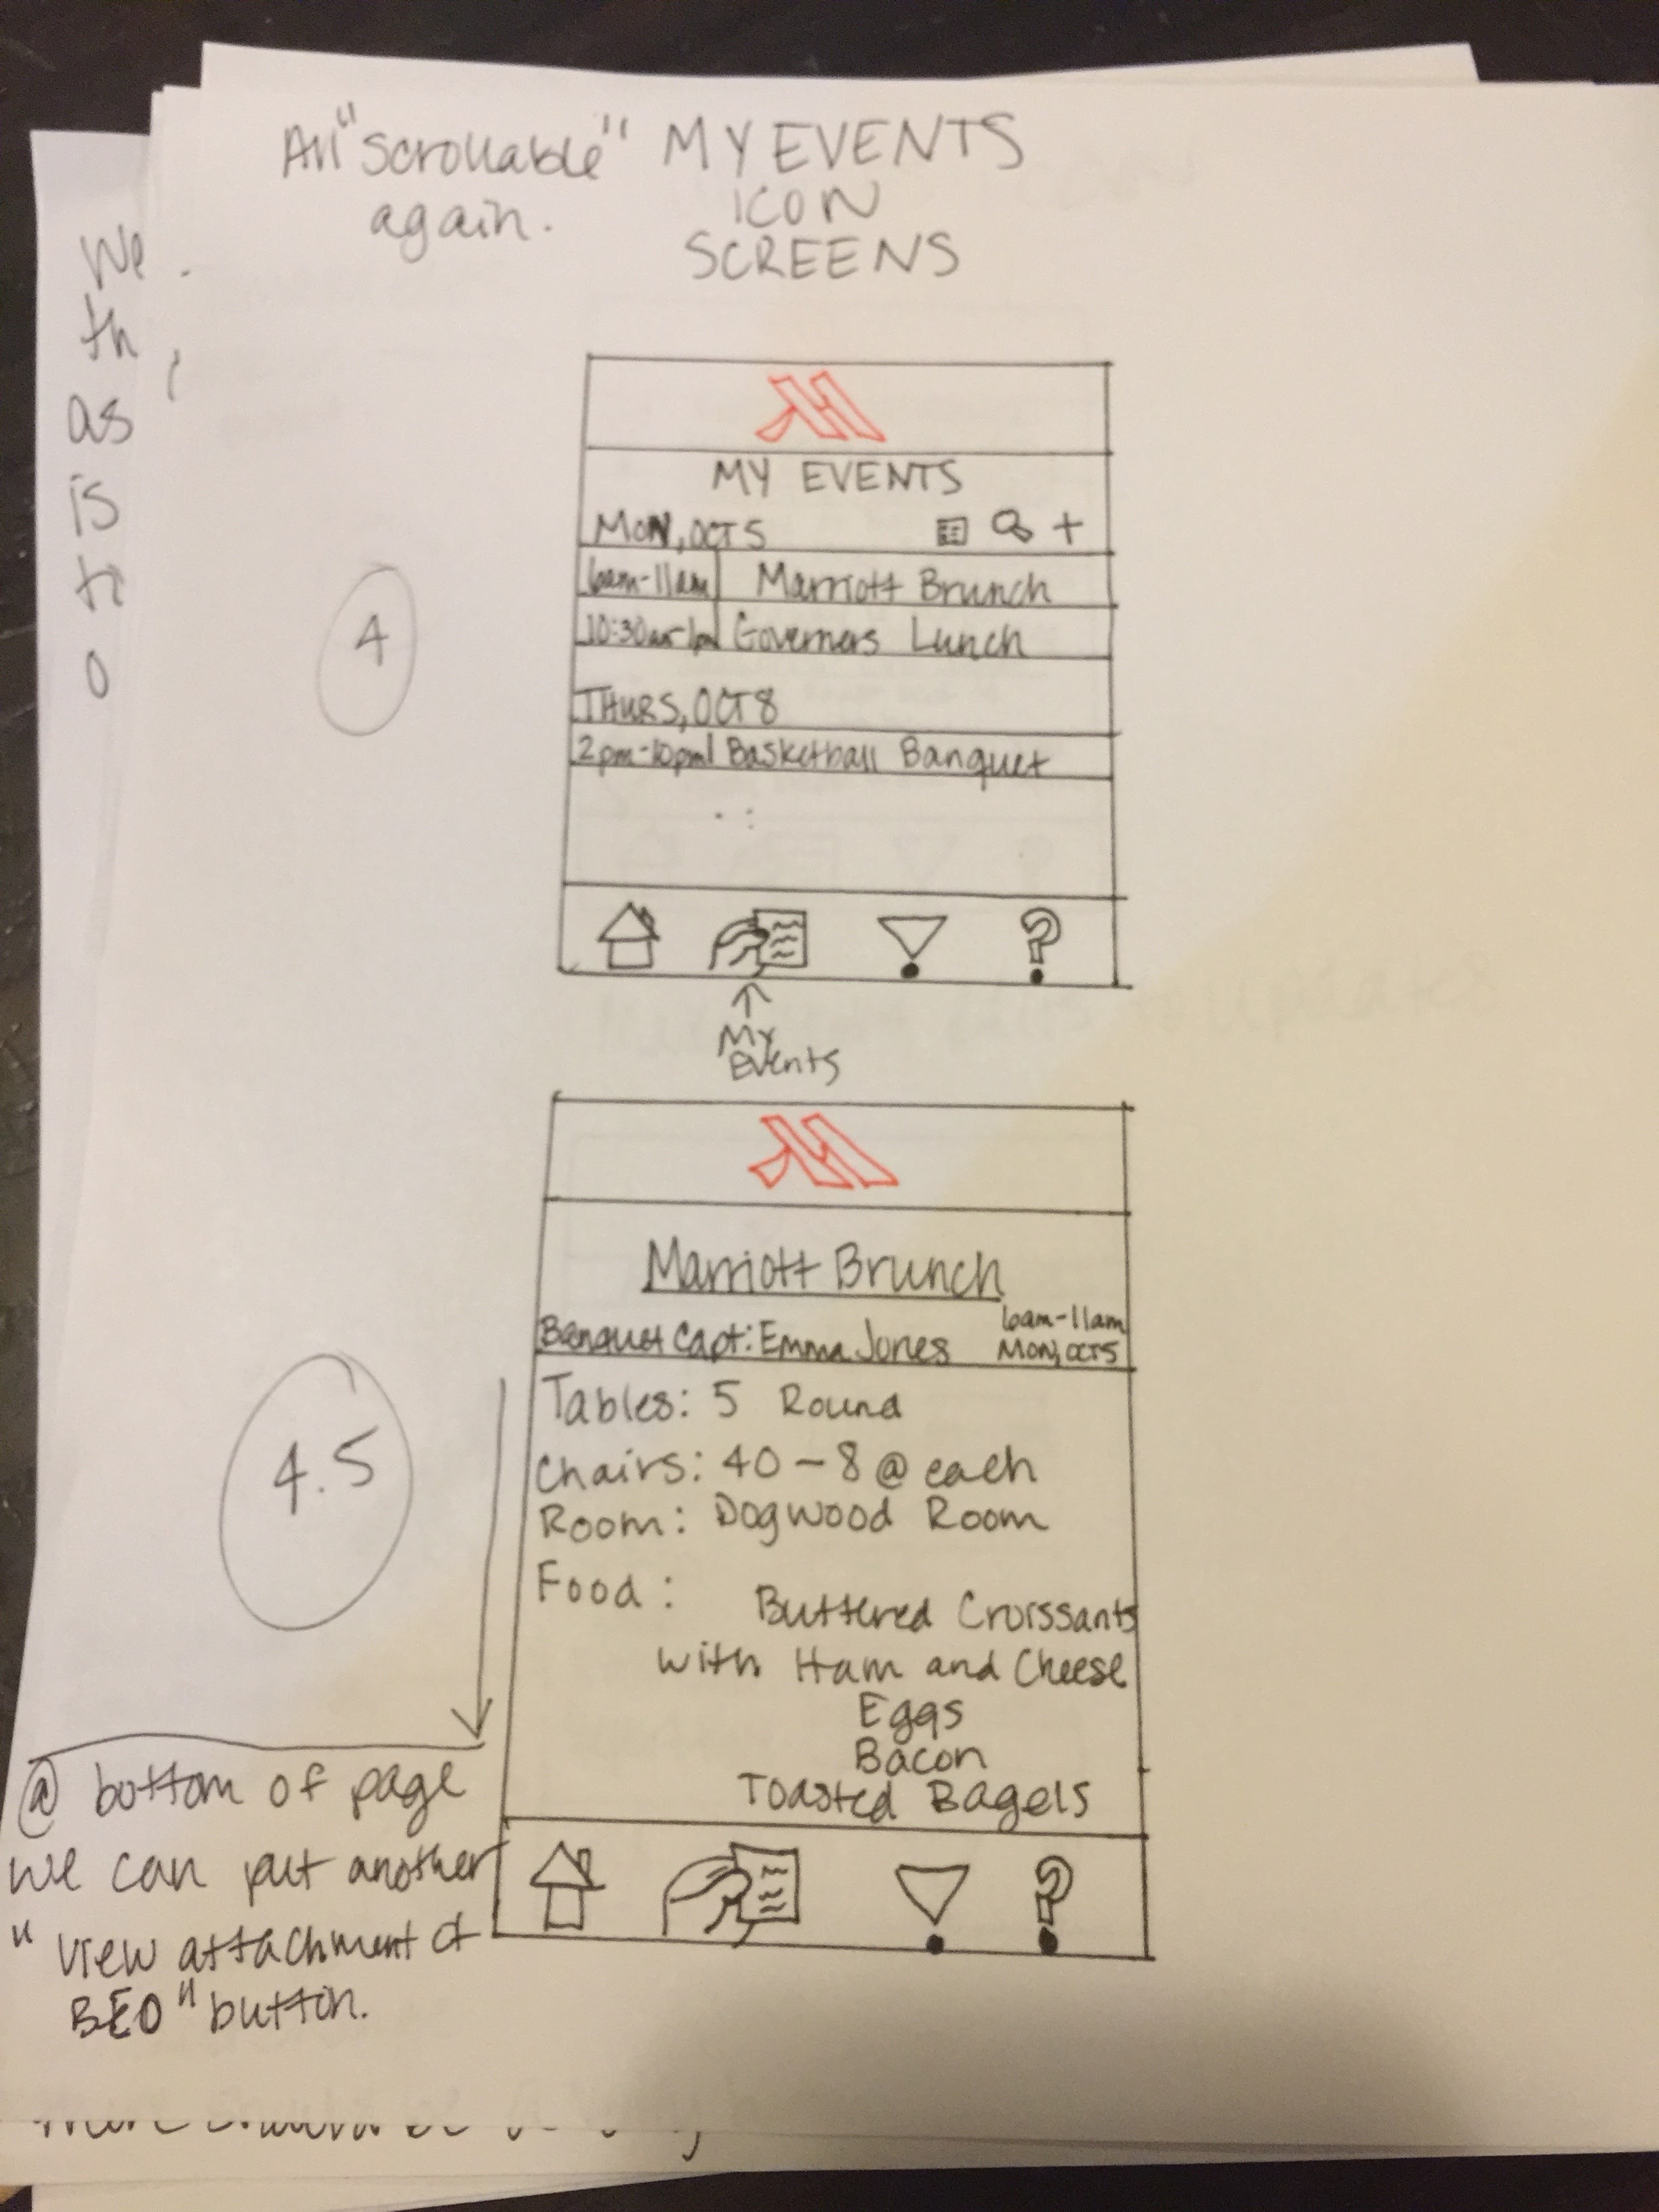 All "Scrollable"
again.
MY EVENTS
ICON
SCREENS
We
th
as
is
o
4
MY EVENTS
MON, OCT 5
6am-11am Marriott Brunch
10:30am-1pm Governers Lunch
THURS, OCT 8
2pm-10pm Basketball Banquet
?
My
Events
4.5
Marriott Brunch
Banquet Capt: Emma Jones
6am-11am
MON, OCT 5
Tables: 5 Round
Chairs: 40 - 8 @ each
Room: Dogwood Room
Food:
Buttered Croissants
with Ham and Cheese
Eggs
Bacon
Toasted Bagels
?
@ bottom of page
we can put another
"view attachment of
BEO" button.